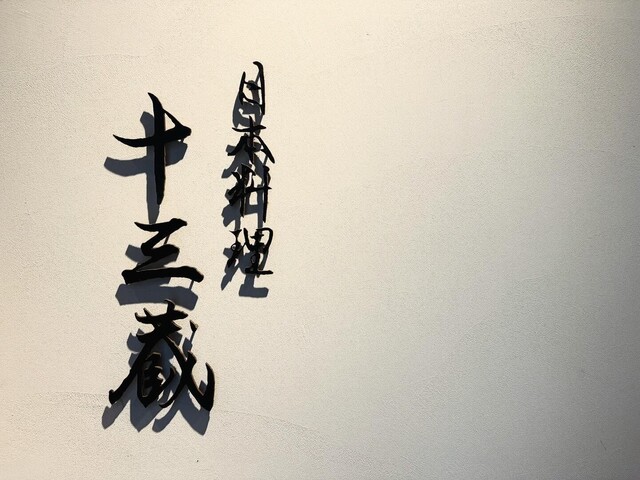 日本料理
十三蔵